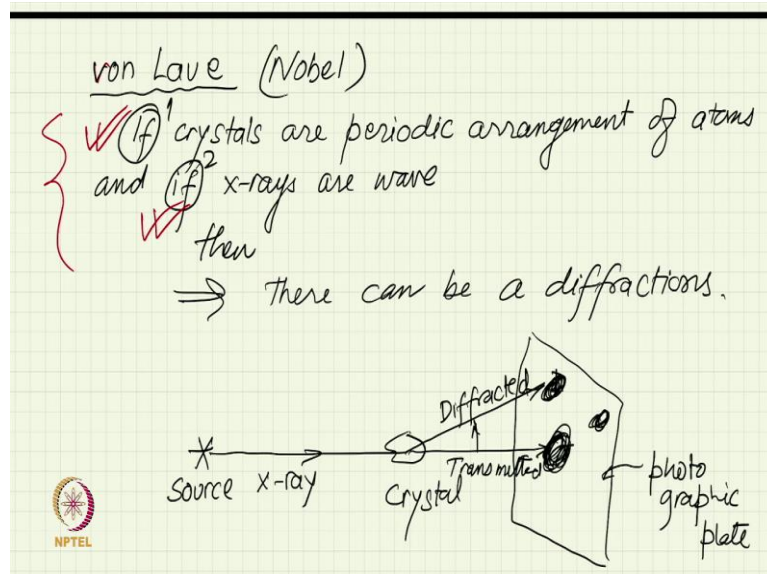 von Laue (Nobel)
If 1 crystals are periodic arrangement of atoms
and if 2 x-rays are wave
then
⇒ There can be a diffractions.
Diffracted
Transmitted
Source X-ray Crystal
photo
graphic
plate
NPTEL